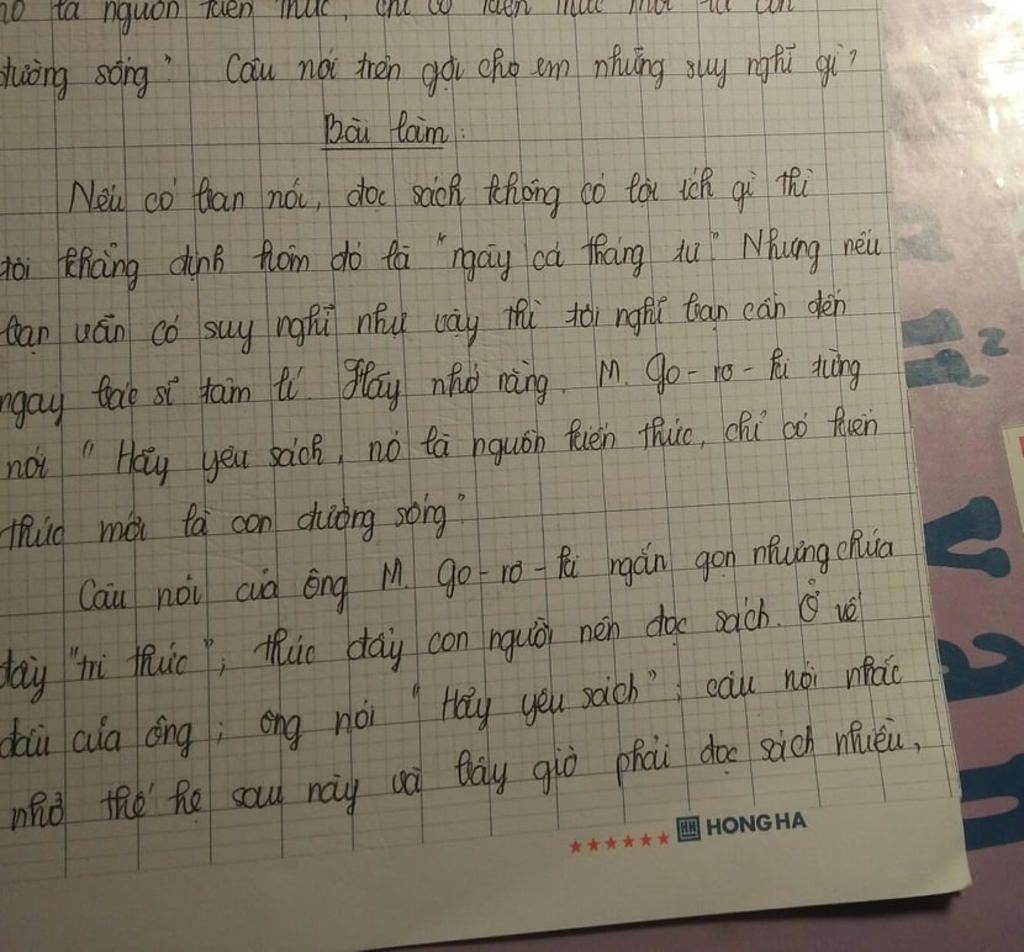 nó là nguồn kiến thức, chỉ có kiến thức mới là con
đường sống" Câu nói trên gợi cho em những suy nghĩ gì?
Bài làm:
Nếu có bạn nói, đọc sách không có lợi ích gì thì
tôi khẳng định hôm đó là "ngày cá tháng tư". Nhưng nếu
bạn vẫn có suy nghĩ như vậy thì tôi nghĩ bạn cần đến
ngay bác sĩ tâm lí. Hãy nhớ rằng, M. Go-rơ-ki từng
nói "Hãy yêu sách, nó là nguồn kiến thức, chỉ có kiến
thức mới là con đường sống"
Câu nói của ông M. Go-rơ-ki ngắn gọn nhưng chứa
đầy "tri thức", thúc đẩy con người nên đọc sách. Ở vế
đầu của ông; ông nói "Hãy yêu sách"; câu nói nhắc
nhở thế hệ sau này và bây giờ phải đọc sách nhiều,
HONG HA